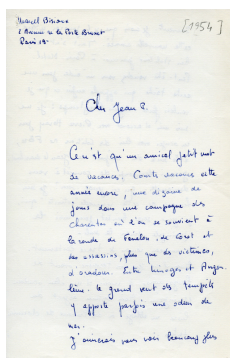 Marcel Bisiaux
2 Avenue de la Porte Brunet
Paris 19e
[1954]
Cher Jean P.
Ce n'est qu'un amical petit mot
de vacances. Courte vacance cette
année encore, une dizaine de
jours dans une campagne des
Charentes où l'on se souvient à
la ronde de Fénelon, de Corot et
des assassins, plus que des victimes,
d'oradour. Entre Limoges et Angou-
lême : le grand vent des tempêts
y apporte parfois une odeur de
mer.
J'aimerais vous voir beaucoup plus